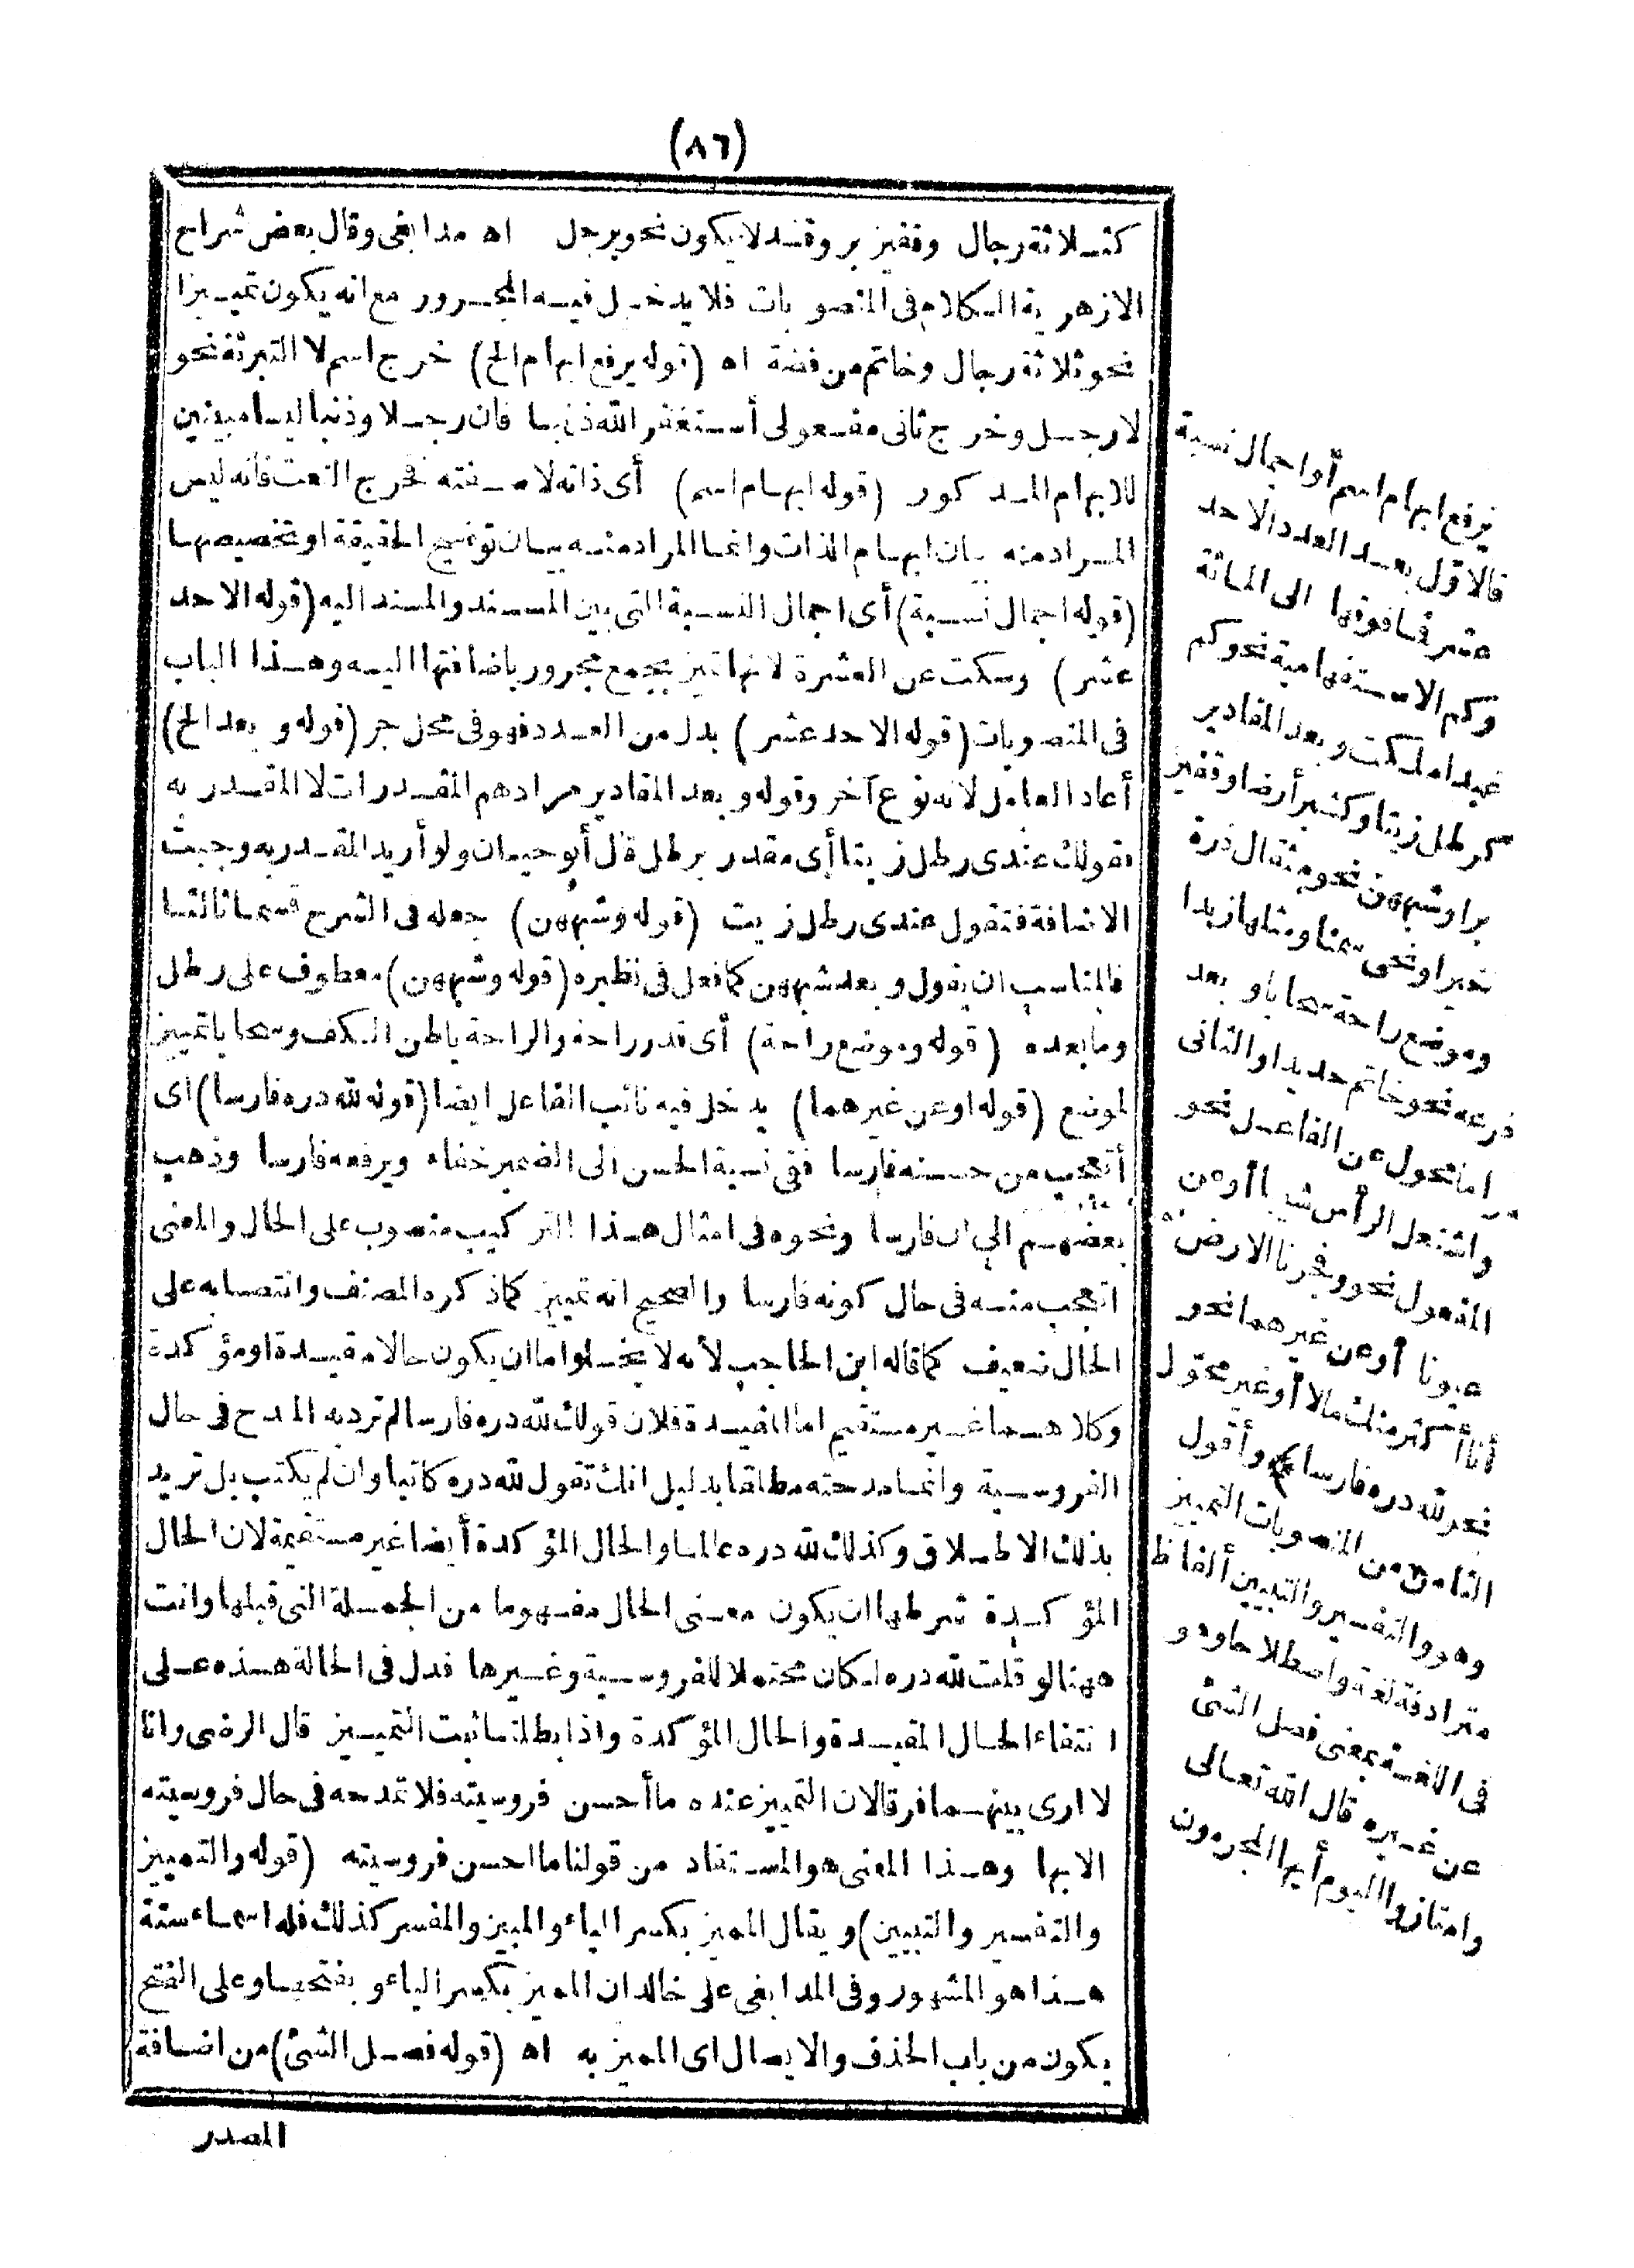 (٨٦)
كثلاثة رجال وقفيز بر وقد لا يكون نحو برجل اه مدابغى وقال بعض شراح
الازهرية الكلام فى المنصوبات فلا يدخل فيه المجرور مع انه يكون تمييزا
نحو ثلاثة رجال وخاتم من فضة اه (قوله يرفع ابهام الخ) خرج اسم لا التبرئة نحو
لا رجل وخرج ثانى مفعولى أستغفر الله ذنبا فان رجلا وذنبا ليسا مبينين
للابهام المذكور (قوله ابهام اسم) أى ذاته لا صفته فخرج النعت فانه ليس
المراد منه بيان ابهام الذات وانما المراد منه بيان توضيح الحقيقة او تخصيصها
(قوله اجمال نسبة) أى اجمال النسبة التى بين المسند والمسند اليه (قوله الاحد
عشر) وسكت عن العشرة لانها تميز بجمع مجرور باضافتها اليه وهذا الباب
فى المنصوبات (قوله الاحد عشر) بدل من العدد فهو فى محل جر (قوله وبعد الخ)
أعاد العامل لانه نوع آخر وقوله وبعد المقادير مرادهم المقدرات لا المقدر به
فقولك عندى رطل زيتا أى مقدر برطل قال أبو حيان ولو أريد المقدر به وجبت
الاضافة فتقول عندى رطل زيت (قوله وشبههن) جعله فى الشرح قسما ثالثا
فالمناسب ان يقول وبعد شبههن كما فعل فى نظيره (قوله وشبههن) معطوف على رطل
وما بعده (قوله وموضع راحة) أى قدر راحة والراحة باطن الكف وسحابا تمييز
لموضع (قوله او عن غيرهما) يدخل فيه نائب الفاعل ايضا (قوله لله دره فارسا) اى
أتعجب من حسنه فارسا ففى نسبة الحسن الى الضمير خفاء ويرفعه فارسا وذهب
بعضهم الى ان فارسا ونحوه فى امثال هذا التركيب منصوب على الحال والمعنى
اتعجب منه فى حال كونه فارسا والصحيح انه تمييز كما ذكره المصنف وانتصابه على
الحال ضعيف كما قاله ابن الحاجب لأنه لا يخلو اما ان يكون حالا مقيدة او مؤكدة
وكلاهما غير مستقيم اما المقيدة فلان قولك لله دره فارسا لم ترد به المدح فى حال
الفروسية وانما مدحته مطلقا بدليل انك تقول لله دره كاتبا وان لم يكتب بل تريد
بذلك الاطلاق وكذلك لله دره عالما والحال المؤكدة أيضا غير مستقيمة لان الحال
المؤكدة شرطها ان يكون معنى الحال مفهوما من الجملة التى قبلها وانت
ههنا لو قلت لله دره لكان محتملا للفروسية وغيرها فدل فى الحالة هذه على
انتفاء الحال المقيدة والحال المؤكدة واذا بطلتا ثبت التمييز قال الرضى وانا
لا ارى بينهما فرقا لان التمييز عنده ما أحسن فروسيته فلا تمدحه فى حال فروسيته
الا بها وهذا المعنى هو المستفاد من قولنا ما احسن فروسيته (قوله والتمييز
والتفسير والتبيين) ويقال المميز بكسر الياء والمبيز والمفسر كذلك فله اسماء ستة
هذا هو المشهور وفى المدابغى على خالد ان المميز بكسر الياء وبفتحها وعلى الفتح
يكون من باب الحذف والايصال اى المميز به اه (قوله فصل الشئ) من اضافة
المصدر
يرفع ابهام اسم أو اجمال نسبة
فالاول بعد العدد الاحد
عشر فما فوقها الى المائة
وكم الاستفهامية نحو كم
عبدا ملكت وبعد المقادير
كرطل زيتا وكشبر أرضا وقفيز
برا وشبههن نحو مثقال ذرة
خيرا ونحى سمنا ومثلها زبدا
وموضع راحة سحابا وبعد
فرعه نحو خاتم حديدا والثانى
اما محول عن الفاعل نحو
واشتعل الرأس شيبا أو عن
المفعول نحو وفجرنا الارض
عيونا أو عن غيرهما نحو
أنا أكثر منك مالا أو غير محول
نحو لله دره فارسا وأقول
الثامن من المنصوبات التمييز
وهو والتفسير والتبيين ألفاظ
مترادفة لغة واصطلاحا وهو
فى اللغة بمعنى فصل الشئ
عن غيره قال الله تعالى
وامتازوا اليوم أيها المجرمون